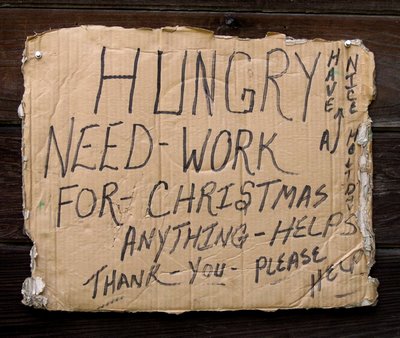 HUNGRY
NEED-WORK
FOR-CHRISTMAS
ANYTHING-HELPS
THANK-YOU-PLEASE
HELP
HAVE A
NICE